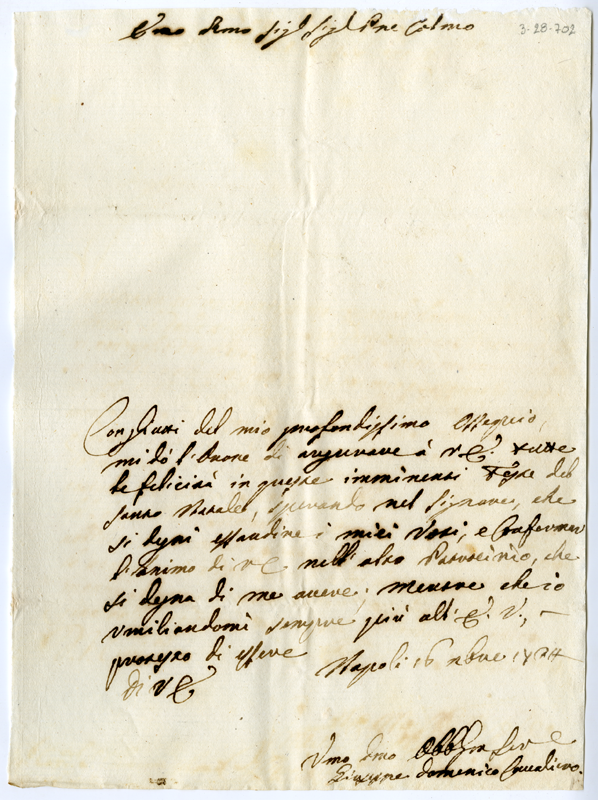 3-28-702
Emo Rmo Sigr Sigr Pne Colmo
Con gl'atti del mio profondissimo Ossequio,
mi dò l'onore di augurare à V. E. tutte
le felicità in queste imminenti Feste del
santo Natale, sperando nel Signore, che
si degni essaudire i miei Voti, e Confermar
l'animo di V E nell'alto Patrocinio, che
si degna di me avere; mentre che io
umiliandomi sempre più all'E. V., –
protesto di essere
Di V E
Napoli 16 xbre
Umo Dmo Obblmo Sere
Giuseppe Domenico